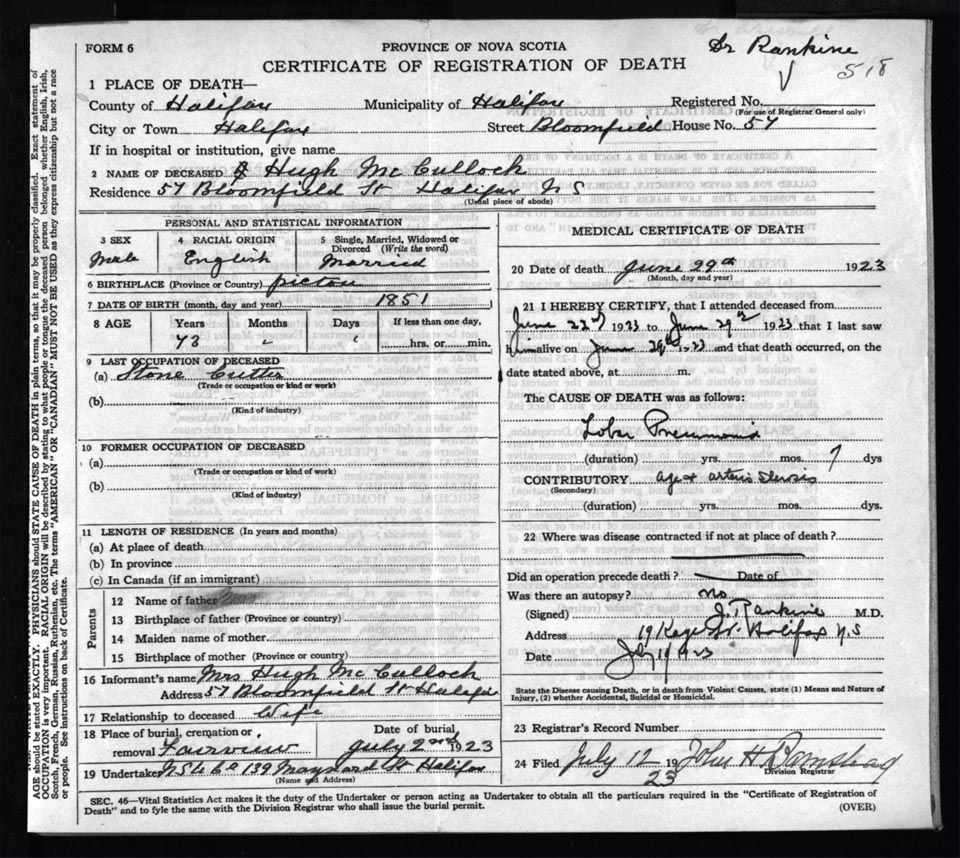 FORM 6
PROVINCE OF NOVA SCOTIA
CERTIFICATE OF REGISTRATION OF DEATH
Dr Rankine
518
1 PLACE OF DEATH—
County of Halifax Municipality of Halifax Registered No.
(For use of Registrar General only)
City or Town Halifax Street Bloomfield House No. 57
If in hospital or institution, give name
2 NAME OF DECEASED Hugh McCulloch
Residence 57 Bloomfield St Halifax N S
(Usual place of abode)
PERSONAL AND STATISTICAL INFORMATION
3 SEX
Male
4 RACIAL ORIGIN
English
5 Single, Married, Widowed or Divorced (Write the word)
Married
6 BIRTHPLACE (Province or Country) Pictou
7 DATE OF BIRTH (month, day and year) 1851
8 AGE Years Months Days If less than one day,
73 " " hrs. or min.
9 LAST OCCUPATION OF DECEASED
(a) Stone Cutter
(Trade or occupation or kind or work)
(b)
(Kind of industry)
10 FORMER OCCUPATION OF DECEASED
(a)
(Trade or occupation or kind of work)
(b)
(Kind of industry)
11 LENGTH OF RESIDENCE (In years and months)
(a) At place of death
(b) In province
(c) In Canada (if an immigrant)
Parents
12 Name of father
13 Birthplace of father (Province or country)
14 Maiden name of mother
15 Birthplace of mother (Province or country)
16 Informant's name Mrs Hugh McCulloch
Address 57 Bloomfield St Halifax
17 Relationship to deceased Wife
18 Place of burial, cremation or removal Fairview
Date of burial July 2nd 1923
19 Undertaker 139 Maynard St Halifax
(Name and Address)
MEDICAL CERTIFICATE OF DEATH
20 Date of death June 29th 1923
(Month, day and year)
21 I HEREBY CERTIFY, that I attended deceased from
June 23rd 1923 to June 29th 1923 that I last saw
him alive on June 29th 1923 and that death occurred, on the
date stated above, at m.
The CAUSE OF DEATH was as follows:
Lobar Pneumonia
(duration) yrs. mos. 7 dys
CONTRIBUTORY age &
(Secondary)
(duration) yrs. mos. dys.
22 Where was disease contracted if not at place of death?
Did an operation precede death? Date of
Was there an autopsy? no
(Signed) J. Rankine M.D.
Address Halifax N.S
Date July 1923
State the Disease causing Death, or in death from Violent Causes, state (1) Means and Nature of
Injury, (2) whether Accidental, Suicidal or Homicidal.
23 Registrar's Record Number
24 Filed July 12 1923 John H
Division Registrar
SEC. 46—Vital Statistics Act makes it the duty of the Undertaker or person acting as Undertaker to obtain all the particulars required in the "Certificate of Registration of
Death" and to fyle the same with the Division Registrar who shall issue the burial permit.
(OVER)
AGE should be stated EXACTLY. PHYSICIANS should STATE CAUSE OF DEATH in plain terms, so that it may be properly classified. Exact statement of
OCCUPATION is very important. RACIAL ORIGIN will be described by stating to what people or tongue the deceased person belonged whether English, Irish,
Scotch, French, German, Russian, Ruthenian, etc. The terms "AMERICAN" OR "CANADIAN" MUST NOT BE USED as they express citizenship but not a race
or people. See instructions on back of Certificate.